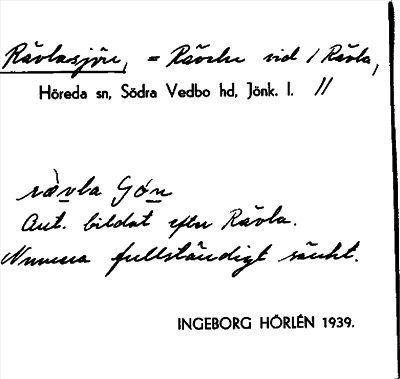 Rävlasjön, = Räveln vid / Rävla,
Höreda sn, Södra Vedbo hd, Jönk. l. //
rävla Gón
Ant. bildat efter Rävla.
Numera fullständigt sänkt.
INGEBORG HÖRLÉN 1939.